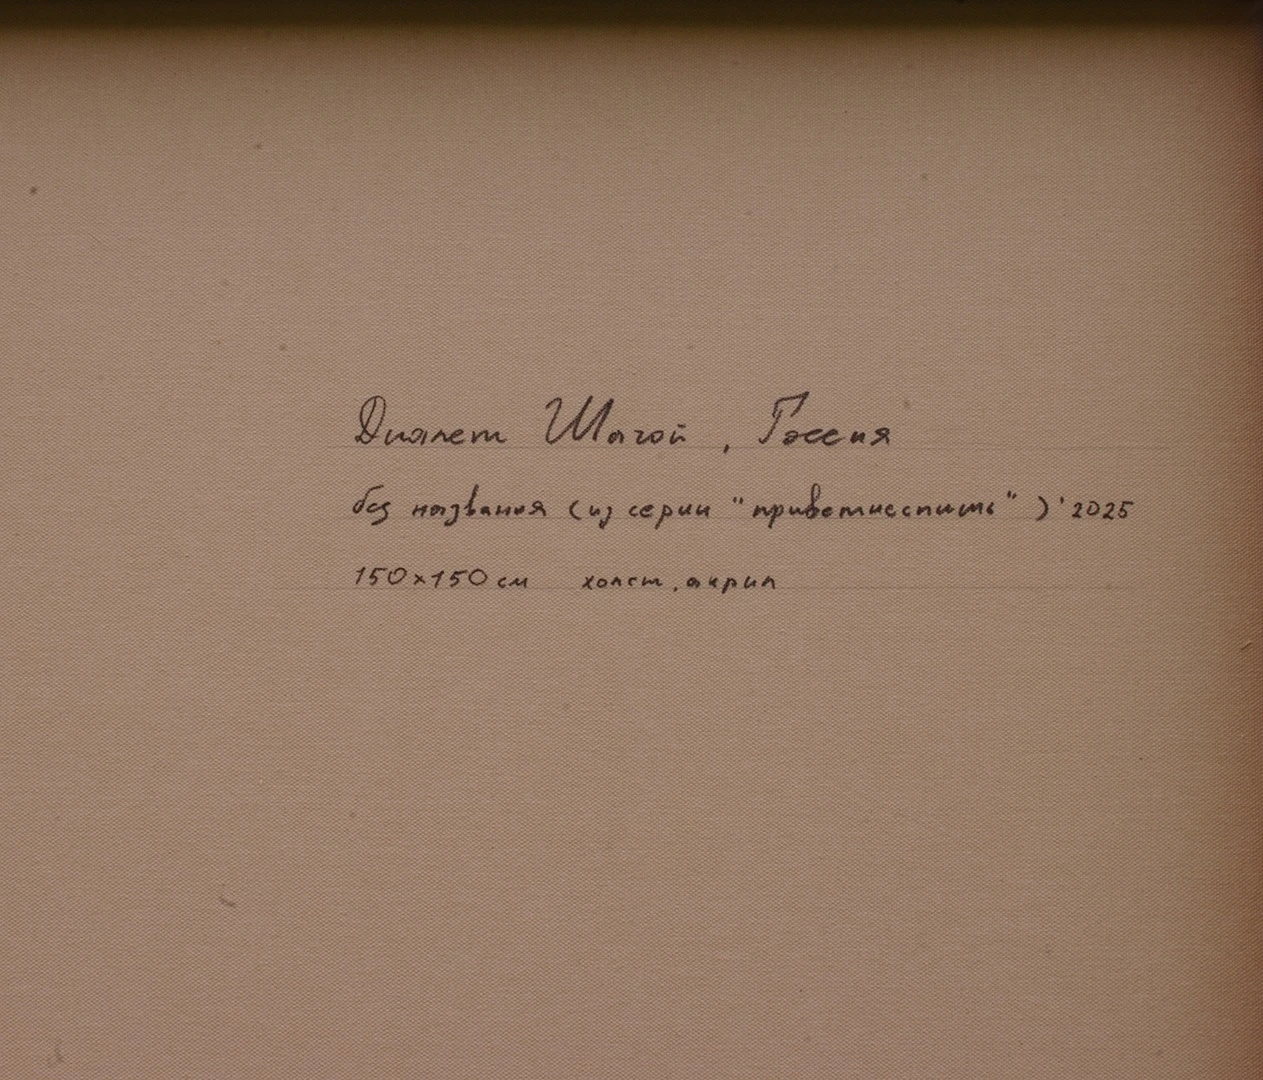 Диалет Шагой, Рассия
без названия (из серии "приветисспишь")'2025
150×150 см холст, акрил